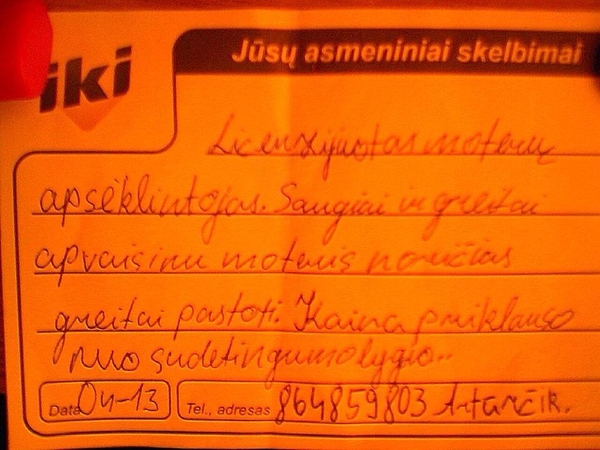 iki
Jūsų asmeniniai skelbimai
Licenzijuotas moterų
apsėklintojas. Saugiai ir greitai
apvaisinu moteris norinčias
greitai pastoti. Kaina priklauso
nuo sudėtingumo lygio..
Data 04-13 Tel., adresas 864859803 Artūrčik.